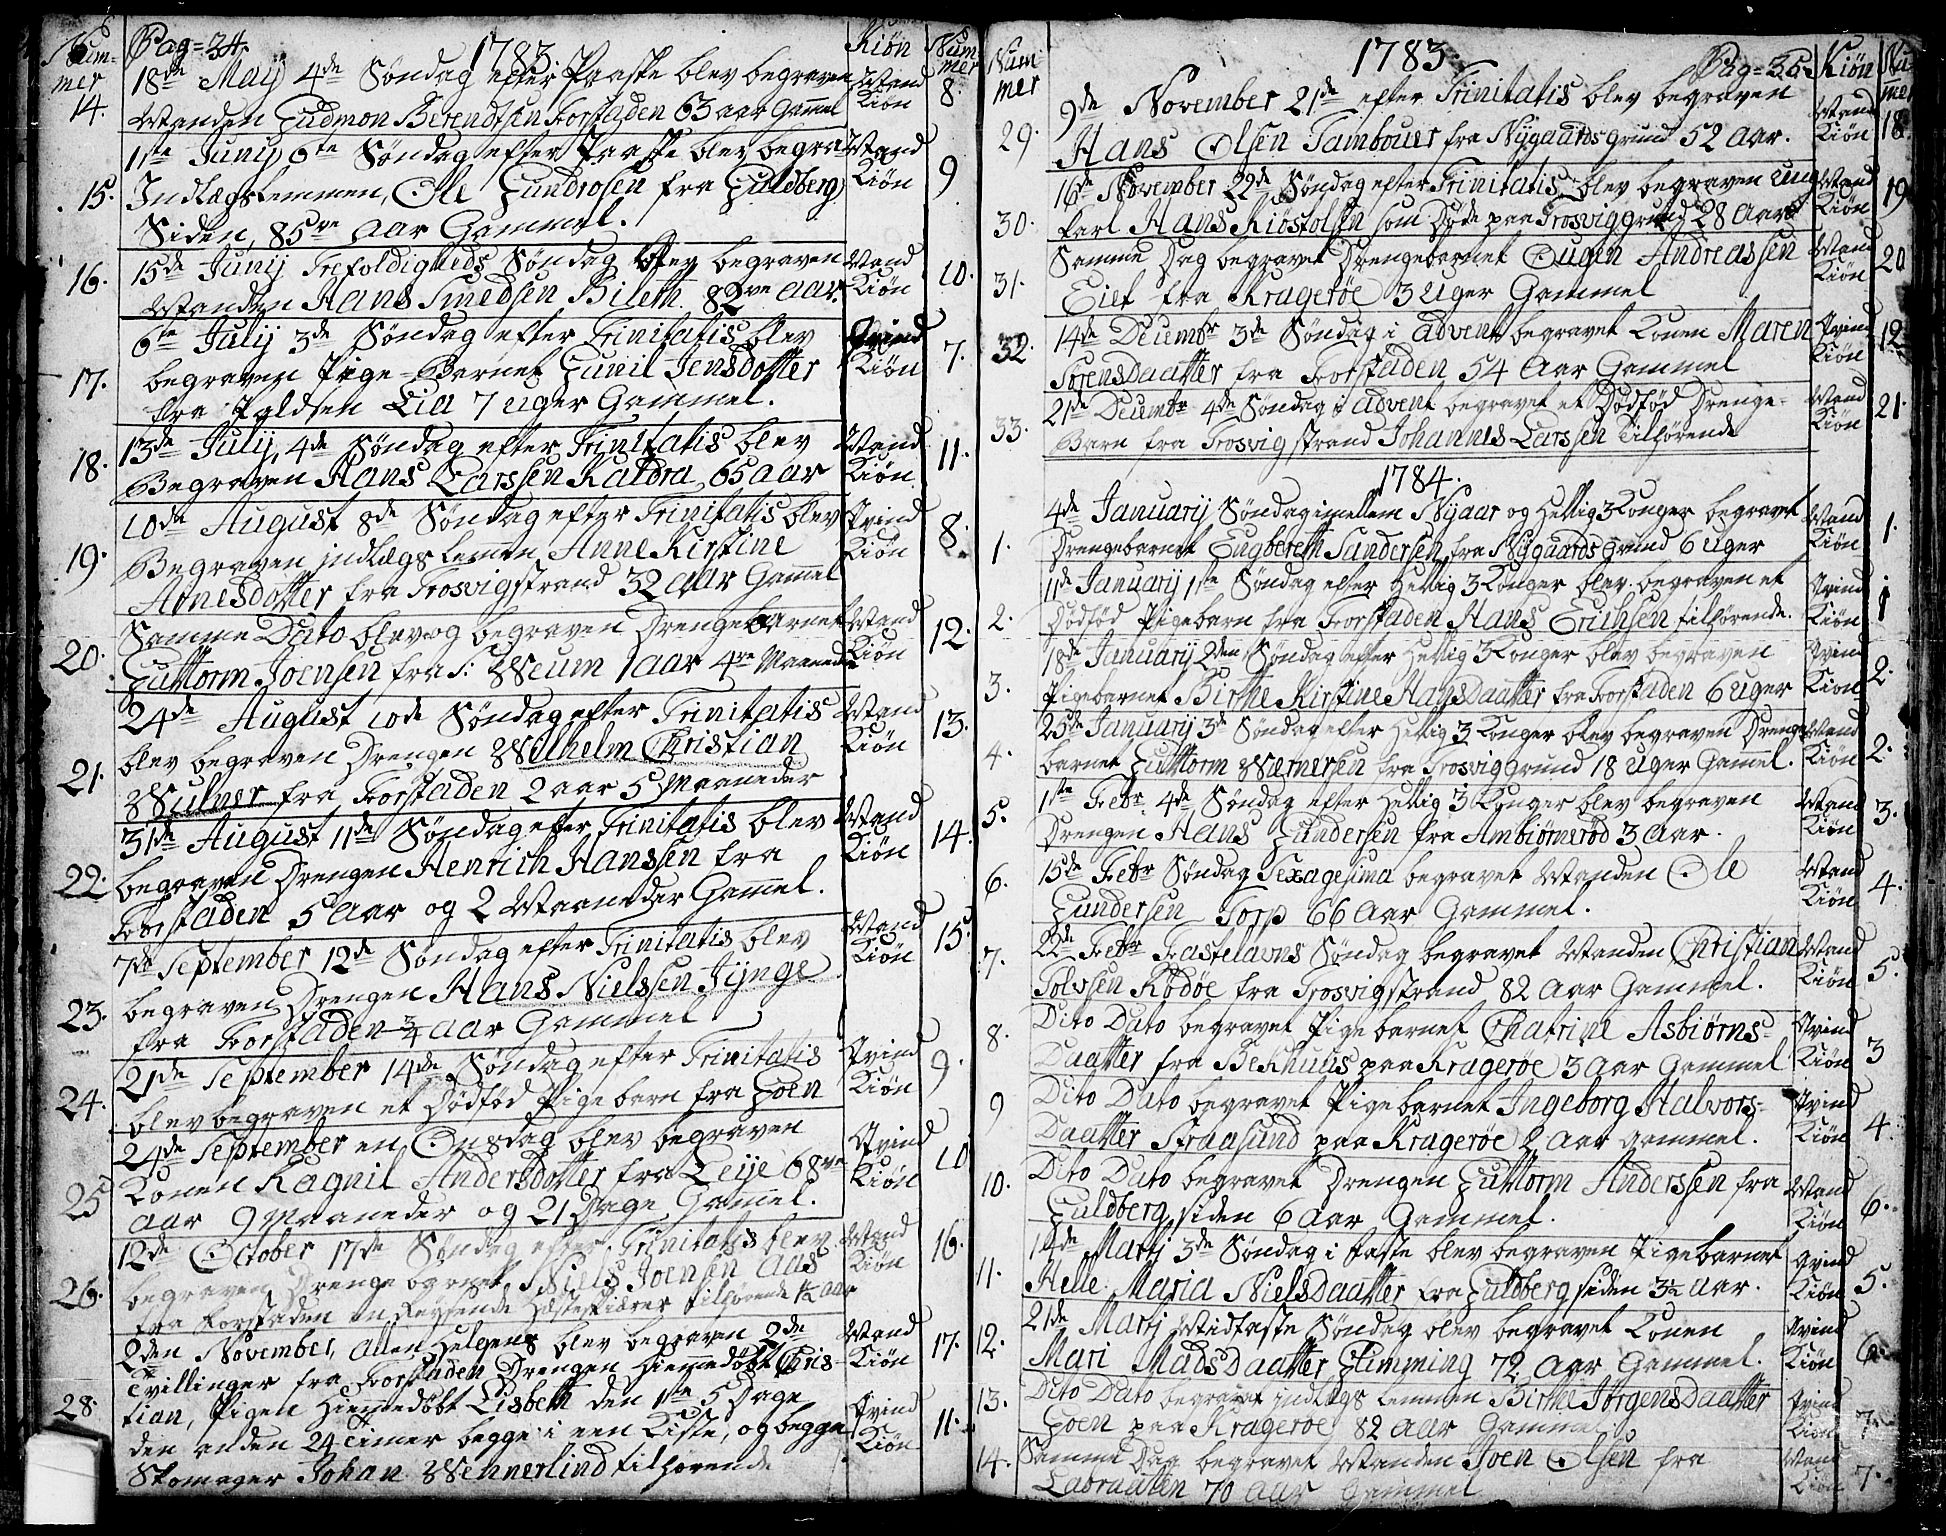 Pag=34.
1783.
Kiøn
Num-
mer
Num-
mer
18de Maij 4de Søndag efter Paaske blev begraven
14. Manden Gudmon Berendtsen Forstaden 63 aar Gammel Mand Kiøn 8.
1ste Junij 6te Søndag efter Paaske blev begra-
15. Indlægslemmen, Ole Gundrosen fra Guldberg Mand Kiøn 9
Siden, 85ve aar Gammel.
15de Junij Trefoldigheds Søndag blev begraven
16. Manden Hans Smedsen Bileth 82ve aar. Mand Kiøn 10.
6te Julij 3de Søndag efter Trinitatis blev
17. begraven Pige-Barnet Gunil Jensdotter Qvind Kiøn 7.
fra Lia 7 uger Gammel.
13de Julij, 4de Søndag efter Trinitatis blev
18. Begraven Hans Larssen Kaldra 65 aar Mand Kiøn 11.
10de August 8de Søndag efter Trinitatis blev
19. Begraven indlægs lemmen Anne Kirstine Qvind Kiøn 8.
Arnesdotter fra Trosvigstrand 32 aar Gammel
Samme Dato blev og begraven Drengebarnet
20. Guttorm Joensen fra S: Weum 1 aar 4re Maaneder Mand Kiøn 12.
24de August 10de Søndag efter Trinitatis
blev begraven Drengen Wilhelm Christian Mand Kiøn 13.
21. Wulner fra Forstaden 2 aar 5 Maaneder
31de August 11de Søndag efter Trinitatis blev
22. begraven Drengen Henrich Hanssen fra Mand Kiøn 14.
Forstaden 5 aar og 2 Maaneder Gammel.
7de September 12de Søndag efter Trinitatis blev
23. begraven Drengen Hans Nielssen Jynge Mand Kiøn 15.
fra Forstaden 3/4 aar Gammel
21de September 14de Søndag efter Trinitatis
24. blev begraven et Dødfød Pige barn fra Goen Qvind Kiøn 9.
24de September en Onsdag blev begraven
25 Konen Ragnil Andersdotter fra Leije 68ve Qvind Kiøn 10
aar 9 Maaneder og 21 Dage Gammel.
12de October 17de Søndag efter Trinitatis blev
26. begraven Drenge Niels Joensen Aas Mand Kiøn 16.
fra Forstaden en Reysende tilhørende 1/2 aar
2den November, Allen Helgens blev begraven 2de
Tvillinger fra Forstaden Drengen Hiemedøbt Chris- Mand Kiøn 17.
28. tian, Pigen Hiemedøbt Lisbeth den 1ste 5 Dage
den anden 24 Timer begge i een Kiste, og begge Qvind Kiøn 11.
Skomager Johan Wennerlind tilhørende
Num
mer
1783
Pag=35
Kiøn
Nu
mer
9de November 21de efter Trinitatis blev begraven
29. Hans Olsen Tambouer fra Nygaards grund 52 Aar. Mand Kiøn 18.
16de November 22de Søndag efter Trinitatis blev begraven ung
30. karl Hans Kiostolsen som Døde paa Trosviggrund 28 Aar Mand Kiøn 19
Samme Dag begravet Drengebarnet Eugen Andreassen
31. Eief fra Kragerøe 3 uger Gammel Mand Kiøn 20
14de Decembr 3de Søndag i Advent begravet Konen Maren
32. Sørensdaatter fra Forstaden 54 Aar Gammel Qvind Kiøn 12
21de Decembr 4de Søndag i Advent begravet et Dødfød Drenge-
33. Barn fra Trosvig strand Johannes Larssen tilhørende Mand Kiøn 21.
1784.
4de Januarij Søndag imellem Nyaar og Hellig 3 Konger begravet
1. Drengebarnet Engbereth Sandersen fra Nygaards grund 6 uger Mand Kiøn 1.
11de Januarij 1ste Søndag efter Hellig 3 Konger blev begraven et
2. Dødfød Pigebarn fra Forstaden Hans Erichsen tilhørende. Qvind Kiøn 1
18de Januarij 2den Søndag efter Hellig 3 Konger blev begraven
3. Pigebarnet Birthe Kirstine Hansdaatter fra Forstaden 6 uger Qvind Kiøn 2.
25de Januarij 3de Søndag efter Hellig 3 Konger blev begraven Drenge
4. barnet Guttorm Wernersen fra Trosvig grund 18 uger Gammel. Mand Kiøn 2.
1ste Febr 4de Søndag efter Hellig 3 Konger blev begraven
5. Drengen Hans Gundersen fra Ambiørnsrød 3 Aar. Mand Kiøn 3.
15de Febr Søndag Sexagesima begravet Manden Ole
6. Gundersen Torp 66 Aar Gammel. Mand Kiøn 4.
22de Febr Fastelavns Søndag begravet Manden Christian
7. Tolvsen Rødøe fra Trosvigstrand 82 Aar Gammel. Mand Kiøn 5.
Dito Dato begravet Pigebarnet Chatrine Asbiørns-
8. Daatter fra Bekhuus paa Kragerøe 3 Aar Gammel Qvind Kiøn 3
Dito Dato begravet Pigebarnet Ingeborg Halvors-
9 Daatter Straasund paa Kragerøe 2 Aar gammel. Qvind Kiøn 4.
Dito Dato begravet Drengen Guttorm Anderssen fra
10. Guldberg siden 6 Aar Gammel. Mand Kiøn 6.
14de Martj 3de Søndag i Faste blev begraven Pigebarnet
11. Helle Maria Nielsdaatter fra Guldberg siden 3 1/2 Aar. Qvind Kiøn 5.
21de Martj Midfaste Søndag blev begravet Konen
12. Mari Madsdaatter Glimming 72 Aar Gammel. Qvind Kiøn 6.
13. Dito Dato begravet indlægs lemmen Birthe Jørgensdaatter
Goen paa Kragerøe 82 Aar Gammel Qvind Kiøn 7.
14. Samme Dag begravet Manden Joen Olsen fra
Labraaten 70 Aar Gammel Mand Kiøn 7.